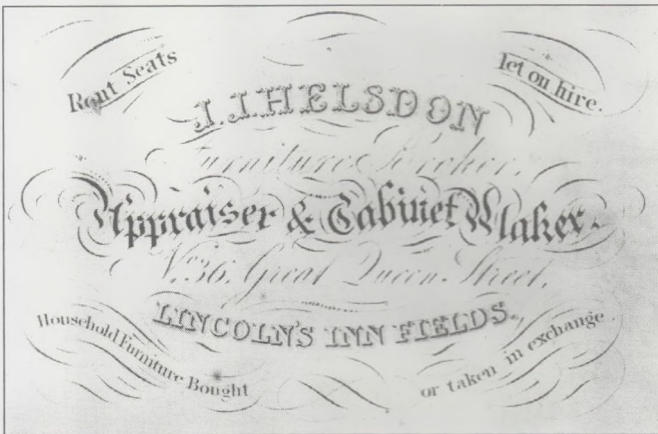 Rout Seats
let on hire.
J. J. HELSDON
Furniture Broker,
Appraiser & Cabinet Maker.
No. 36, Great Queen Street,
LINCOLN'S INN FIELDS.
Household Furniture Bought
or taken in exchange.